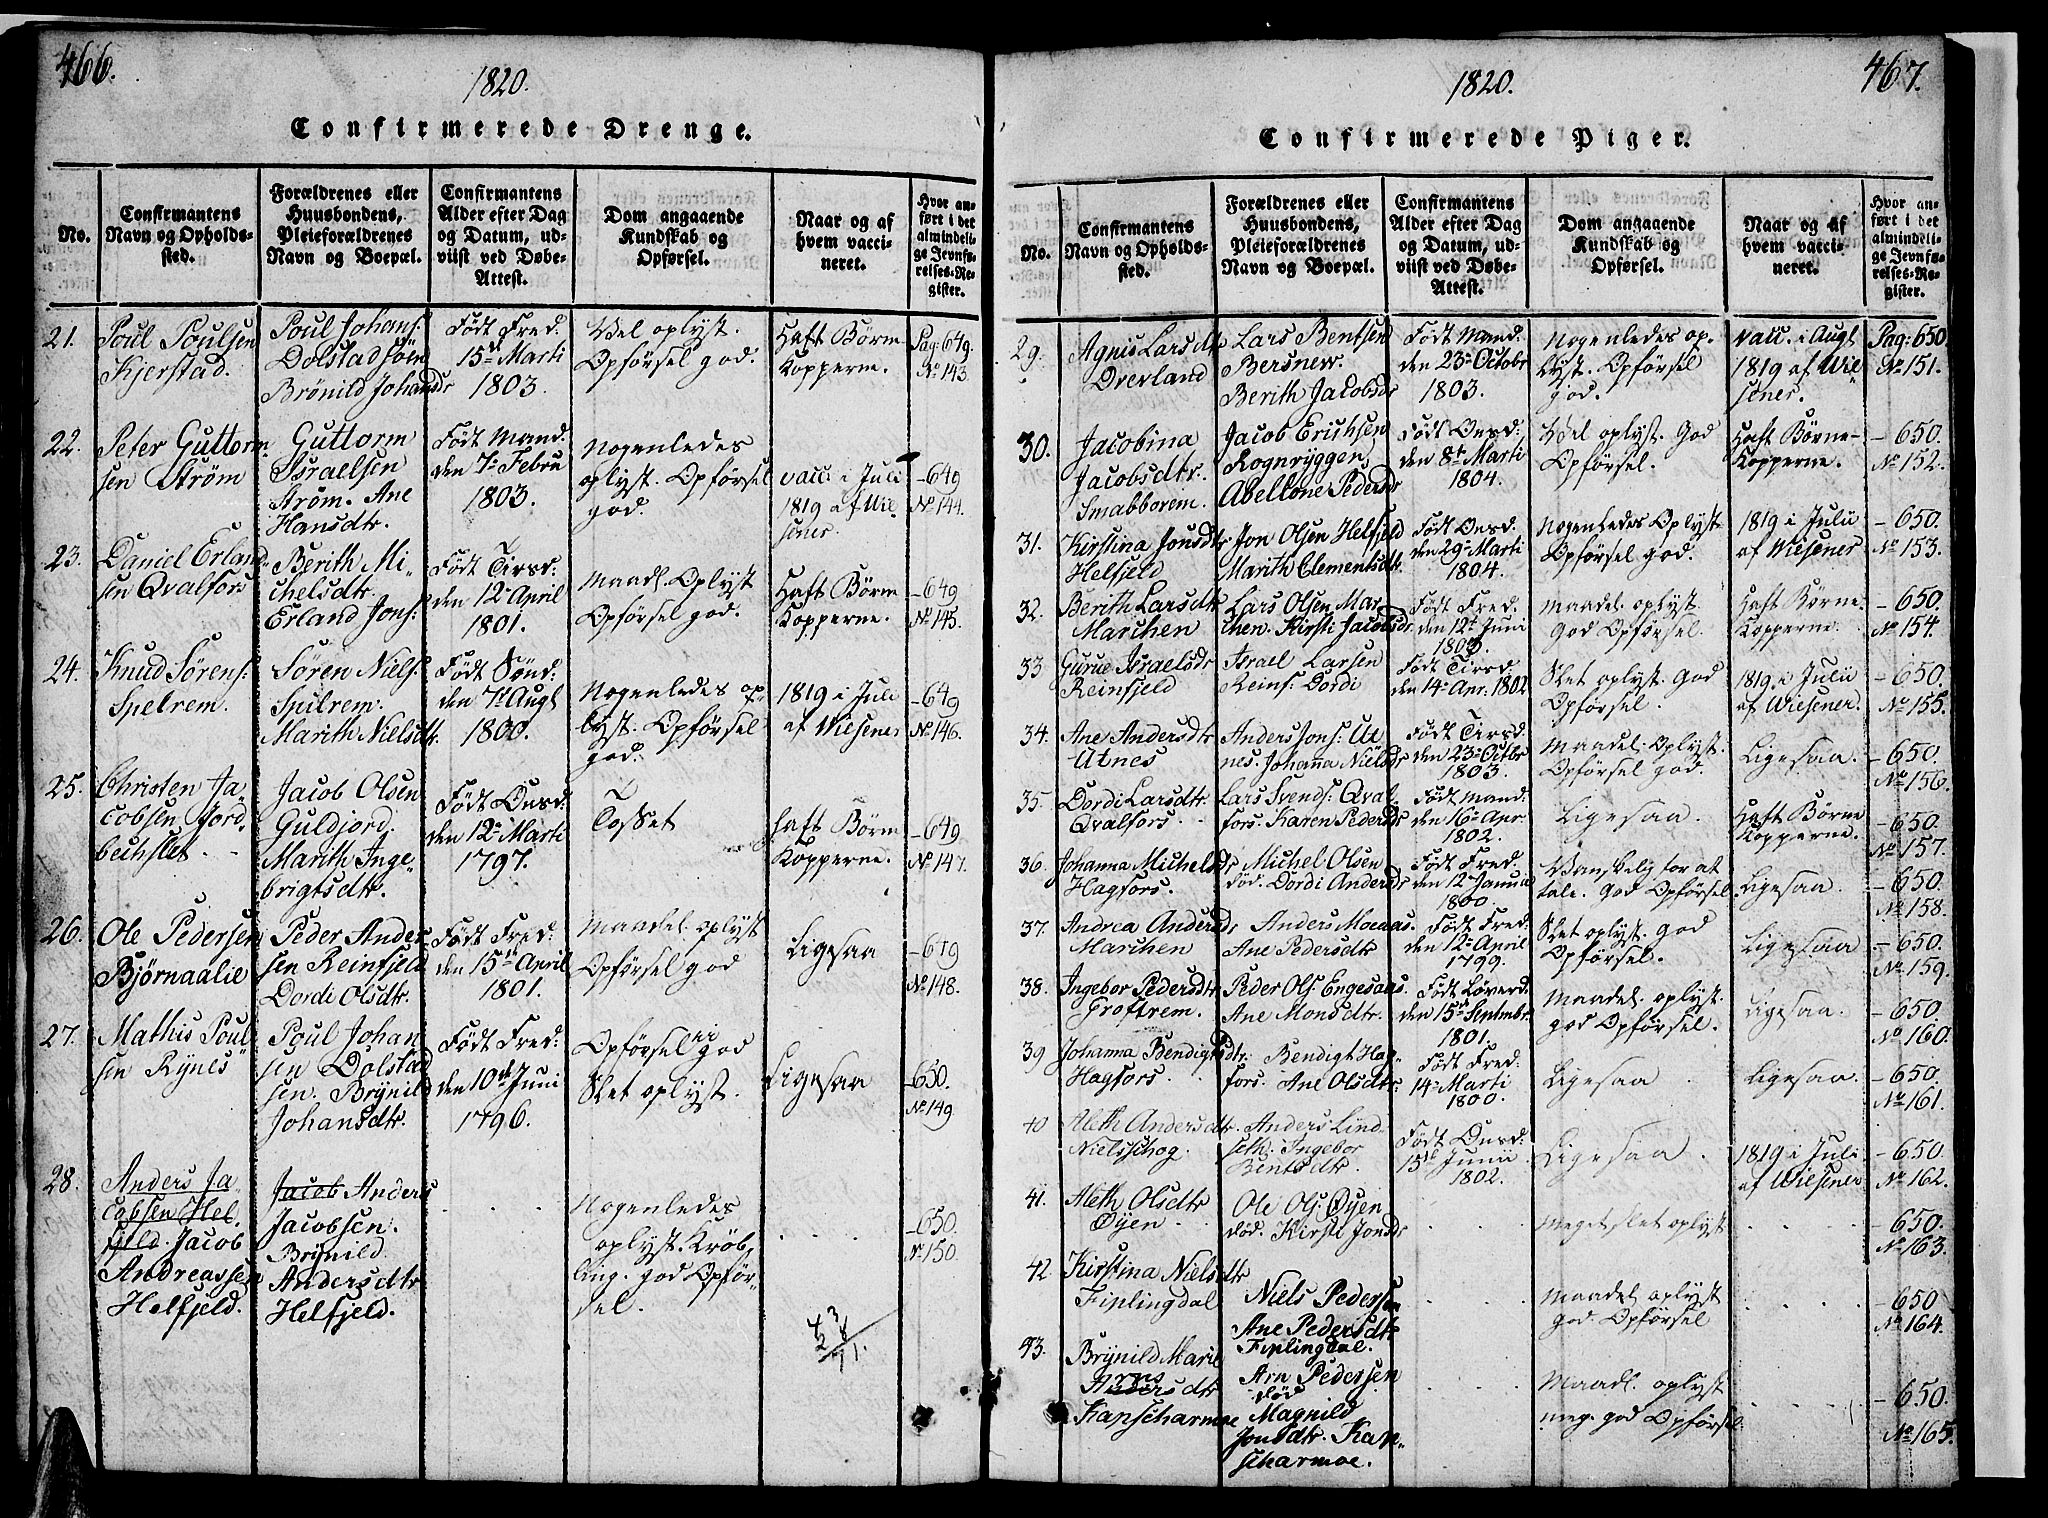 466.
1820.
Confirmerede Drenge.
No.
Confirmantens
Navn og Opholds-
sted.
Forældrenes eller
Huusbondens,
Pleieforældrenes
Navn og Boepæl.
Confirmantens
Alder efter Dag
og Datum, ud-
viist ved Døbe-
Attest.
Dom angaaende
Kundskab og
Opførsel.
Naar og af
hvem vacci-
neret.
Hvor an-
ført i det
almindeli-
ge Jevnfø-
relses-Re-
gister.
21.
Poul Poulsen
Kjerstad.
Poul Johans:
Dolstad søm
Brönild Johansdr
Født Fred.
15d Marti
1803.
Vel oplyst.
Opførsel god.
Haft Börne
Kopperne.
Pag: 649.
No 143.
22.
Peter Guttorm-
sen Ström
Guttorm
Israelsen
Ström. Ane
Hansdtr.
Født Mand.
den 7de Febru
1803.
Nogenledes
oplyst. Opførsel
god.
vacc i Juli
1819 af Wie-
sener.
- 649
No 144.
23.
Daniel Erland-
sen Qvalfors
Berith Mi-
chelsdtr.
Erland Jons:
Født Tirsd:
den 12te April
1801.
Maadl. Oplyst
Opførsel god.
Haft Börne
Kopperne.
- 649
No 145.
24.
Knud Sörens:
Spelrem.
Sören Niels:
Spilrem.
Marith Nielsdtr.
Født Sönd:
den 7de Augt
1800.
Nogenledes op-
lyst. Opførsel
god.
1819 i Juli
af Wiesener
- 649
No 146.
25.
Christen Ja-
cobsen Jord-
bechslet.
Jacob Olsen
Guldjord.
Marith Inge-
brigtsdtr.
Født Onsd:
den 12te Marti
1797.
Tosset
Haft Börne
Kopperne.
- 649
No 147.
26.
Ole Pedersen
Bjørnaalie
Peder Ander-
sen Reinfjeld
Dordi Olsdtr.
Født Fred:
den 15de April
1801.
Maadel. oplyst
Opførsel god
Ligesaa
- 649
No 148.
27.
Mathis Poul
sen Rynes
Poul Johan
sen Dolstad
sen. Brynild
Johansdtr.
Født Fred:
den 10de Juni
1796.
Opførsel god
Slet oplyst.
Ligesaa
- 650.
No 149.
28.
Anders Ja-
cobsen Hel-
fjeld. Jacob
Andreassen
Helfjeld.
Jacob Anders
Jacobsen.
Brynild
Andersdtr
Helfjeld.
Nogenledes
oplyst. Kröb-
ling. god Opfør-
sel.
- 650.
No 150.
43
28
71.
467.
1820.
Confirmerede Piger.
No.
Confirmantens
Navn og Opholds-
sted.
Forældrenes eller
Huusbondens,
Pleieforældrenes
Navn og Boepæl.
Confirmantens
Alder efter Dag
og Datum, ud-
viist ved Døbe-
Attest.
Dom angaaende
Kundskab og
Opførsel.
Naar og af
hvem vacci-
neret.
Hvor an-
ført i det
almindeli-
ge Jevnfø-
relses-Re-
gister.
29.
Agnis Larsdtr
Överland
Lars Bentsen
Bersnew.
Berith Jacobsdr
Født Mand:
den 23de Octobr
1803.
Nogenledes op-
lyst. Opførsel
god.
vacc. i Augt
1819 af Wie-
sener.
Pag: 650
No 151.
30.
Jacobina
Jacobsdtr.
Smabborem.
Jacob Erichsen
Rognryggen
Abellone Pedersdr
Født Onsd:
den 8de Marti
1804.
Vel oplyst. God
Opførsel.
Haft Børne-
Kopperne.
- 650.
No 152.
31.
Kirstina Jonsdtr
Helfjeld
Jon Olsen Helfjeld
Marith Clementsdtr.
Født Onsd:
den 29de Marti
1804.
Nogenledes Oplyst
Opførsel god.
1819 i Julii
af Wiesener
- 650.
No 153.
32.
Berith Larsdtr
Marchen
Lars Olsen Mar-
chen. Kirsti Jacobsdr
Født Fred:
den 12te Juni
1803.
Maadel. oplyst.
God Opførsel.
Haft Børne
Kopperne
- 650.
No 154.
33
Gurue Israelsdr
Reinfjeld
Israel Larsen
Reinf: Dordi
Født Tirsd:
den 14de Apr. 1802
Slet oplyst. God
Opførsel.
1819. i Julii
af Wiesener.
- 650.
No 155.
34.
Ane Andersdtr
Utnes
Anders Jons: Ut
nes. Johana Nielsdr
Født Tirsd:
den 23de Octbr
1803.
Maadel. Oplyst.
Opførsel god.
Ligesaa.
- 650.
No 156.
35.
Dordi Larsdtr.
Qvalfors.
Lars Svends: Qval-
fors. Karen Pedersdr
Født Mand:
den 16de Apr.
1802.
Ligesaa.
Haft Børne
Kopperne.
- 650.
No 157.
36.
Johanna Michelsdr
Hagfors.
Michel Olsen
död. Dordi Andersdr
Født Fred:
den 12te Janua
1800.
Vanskelig for at
tale. God Opførsel
Ligesaa.
- 650.
No 158.
37.
Andrea Andersdr
Marchen
Anders Moeaas.
Ane Pedersdtr
Født Fred:
den 12te April
1799.
Slet oplyst. god
Opførsel.
Ligesaa
- 650.
No 159.
38.
Ingebor Pedersdtr
Groftrem.
Peder Ols: Engesaas.
Ane Monsdtr.
Født Löverd:
den 15de Septmbr.
1801.
Maadel. oplyst.
god Opførsel.
Ligesaa.
- 650.
No 160.
39
Johanna Bendigtsdtr.
Hagfors.
Bendigt Hag-
fors. Ane Olsdtr.
Født Fred:
14de Marti
1800.
Ligesaa
Ligesaa.
- 650.
No 161.
40
Aleth Andersdtr.
Nielsschog.
Anders Lind-
seth. Ingebor
Bentsdtr.
Født Onsd:
15de Junii
1802.
Ligesaa.
1819 i Juli
af Wiesener
- 650.
No 162.
41.
Aleth Olsdtr
Öyen
Ole Ols: Öyen
död. Kirsti Jonsdr
Meget slet oplyst
- 650.
No 163.
42
Kirstina Nielsdtr
Fiplingdal
Niels Pedersen
Ane Pedersdtr
Fiplingdal.
Maadel oplyst
god. Opførsel
- 650
No 164.
43.
Brynild Marie
Arns
Andersdtr
Kapscharmoe
Arn Pedersen
död
Magnild
Jonsdtr. Kap-
scharmoe.
Maadl. oplyst
meg. god Opførsel
- 650.
No 165.